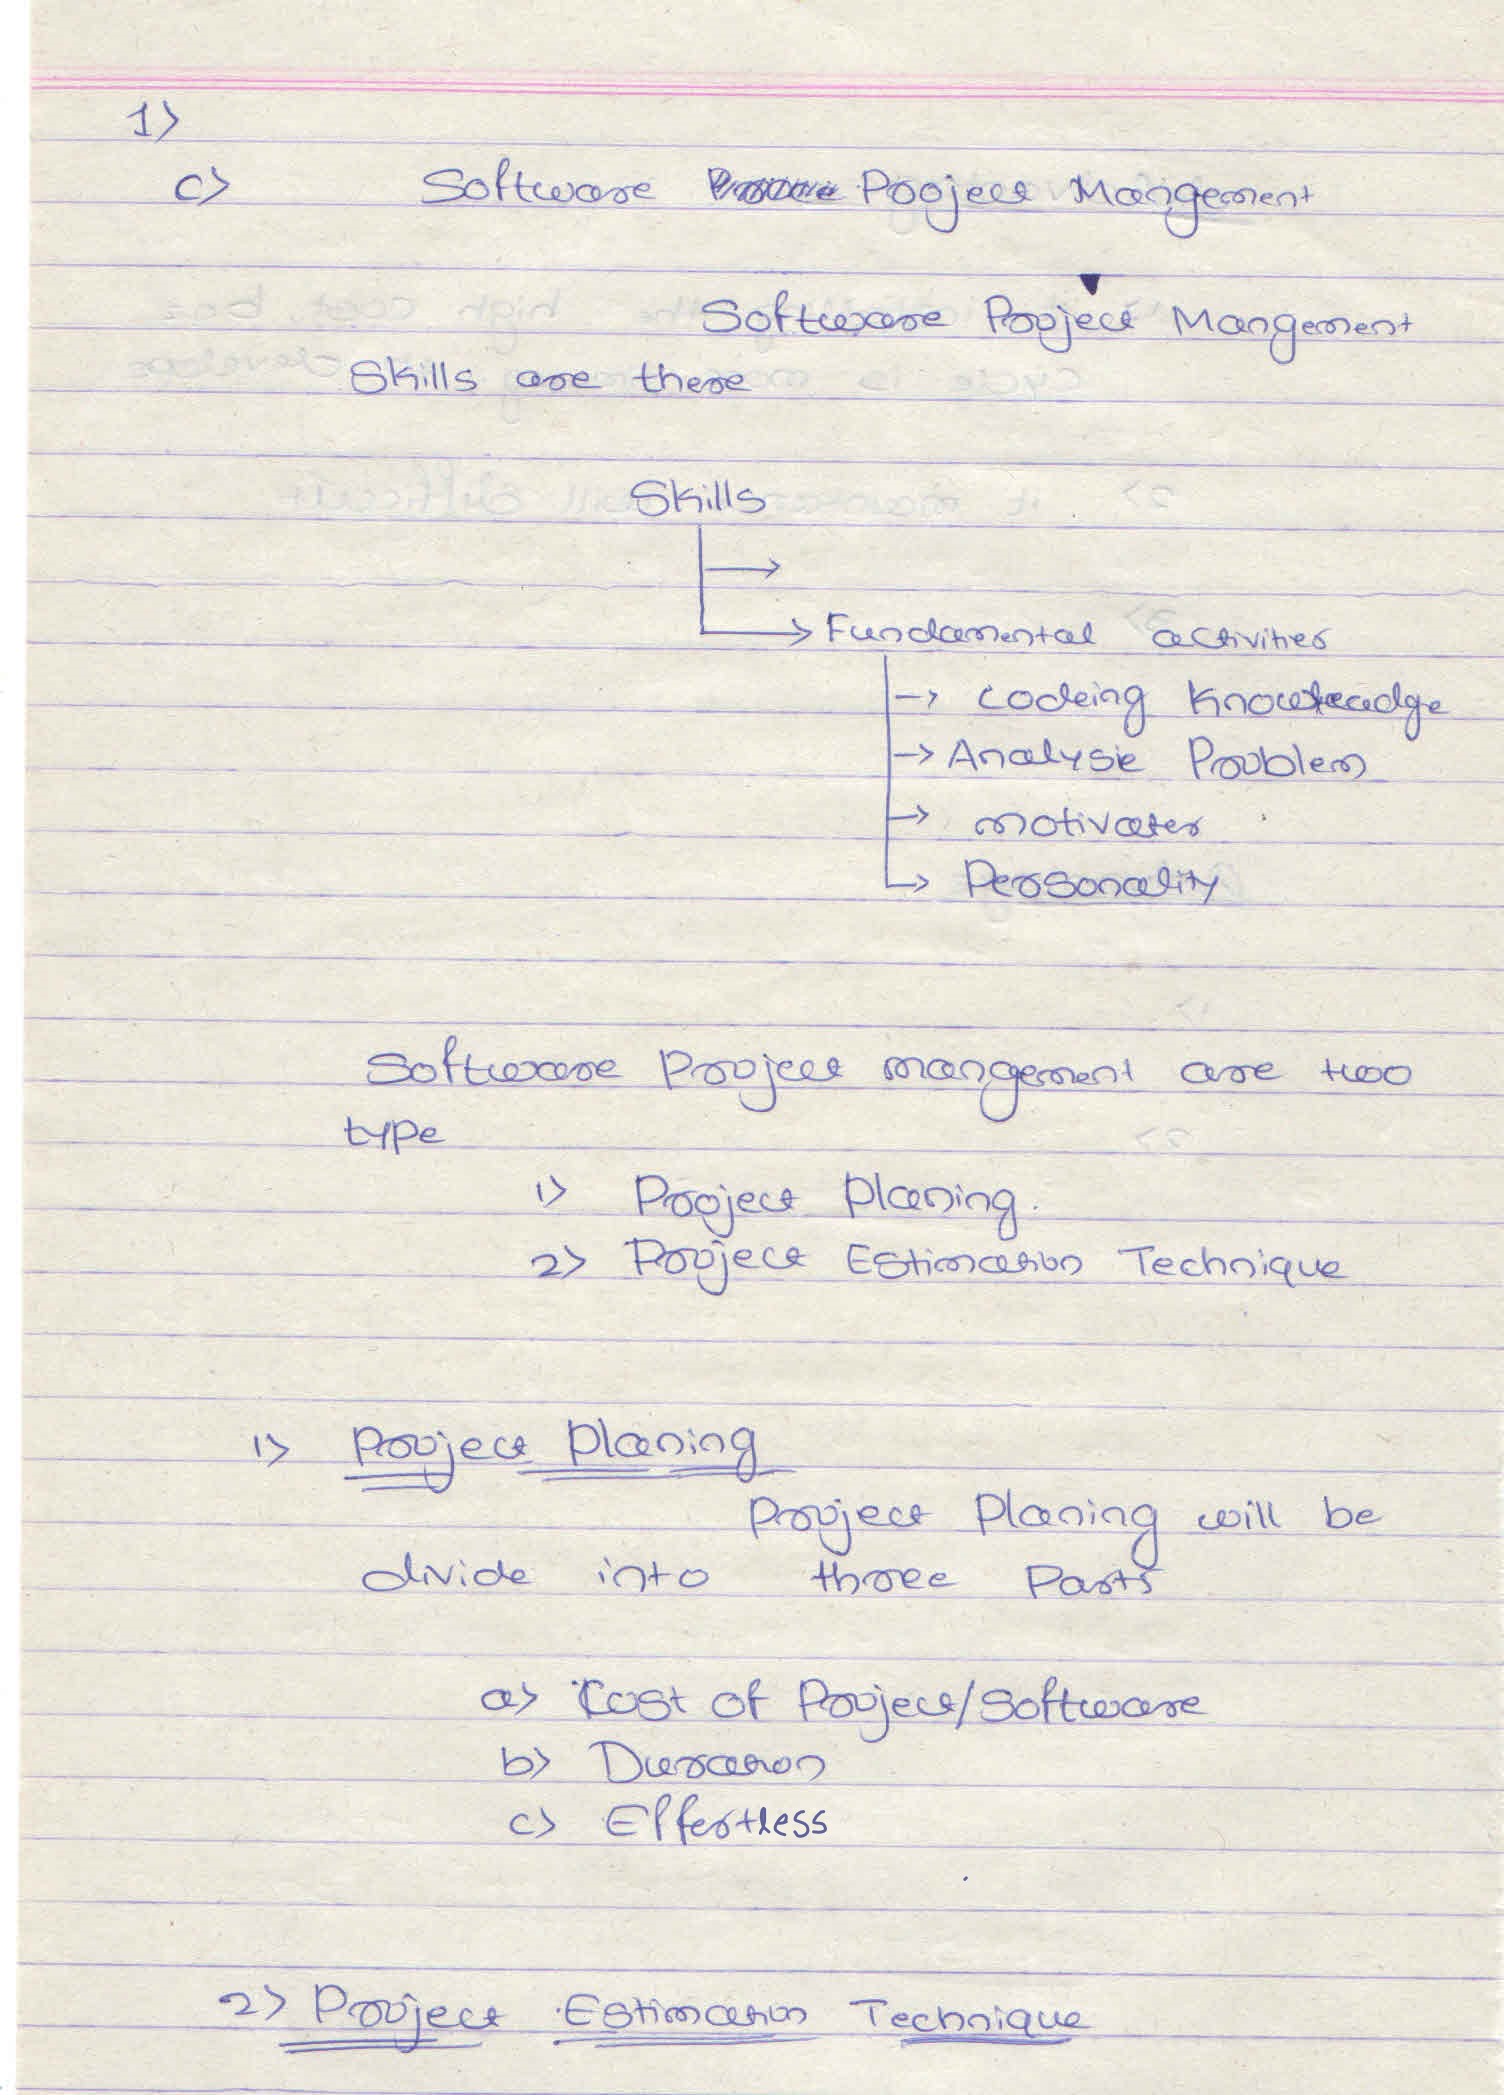 1>
c> Software Project Mangement
Software Project Mangement
Skills are there
Skills
Fundamental activities
Codeing Knowleadge
Analysie Problem
motivater
Personality
Software Project mangement are two
type
1> Project Planing.
2> Project Estimation Technique
1> Project Planing
Project Planing will be
divide into three Parts
a> Cost of Project/Software
b> Duration
c> Effertless
2> Project Estimation Technique